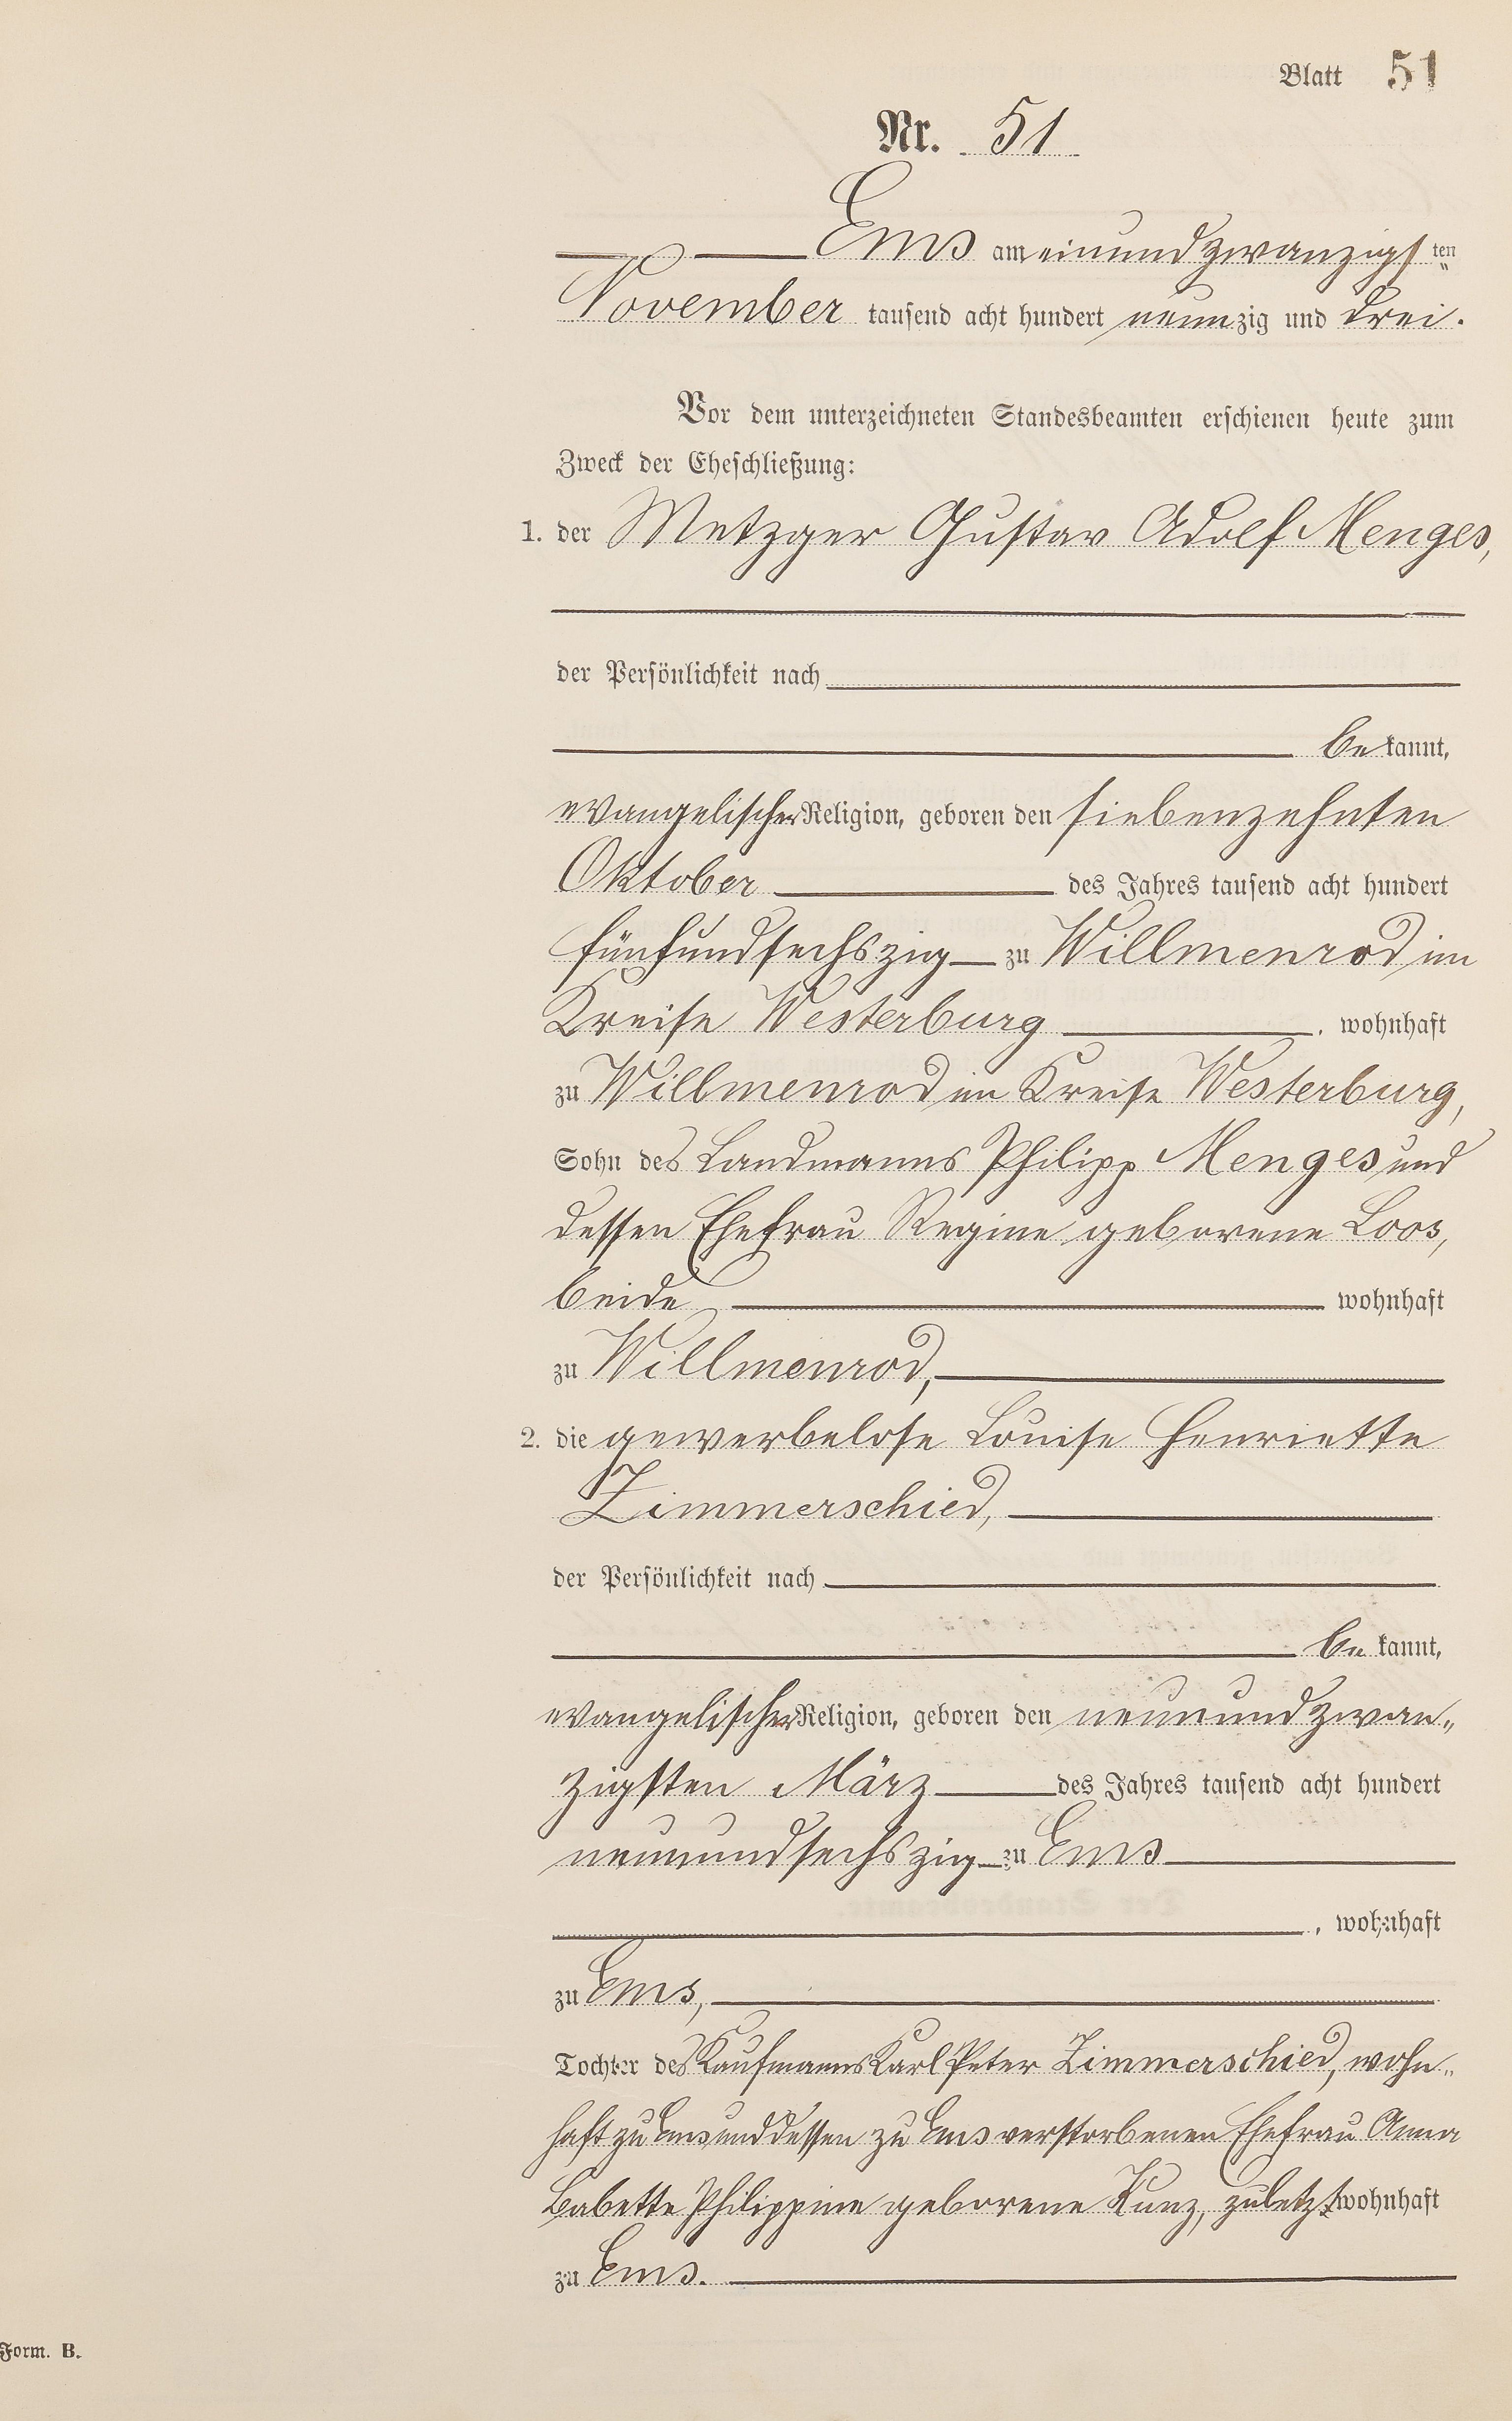 Blatt 51
Nr. 51
Ems am einundzwanzigsten
November tausend acht hundert neunzig und drei.
Vor dem unterzeichneten Standesbeamten erschienen heute zum
Zweck der Eheschließung:
1. der Metzger Gustav Adolf Menges,
der Persönlichkeit nach
bekannt,
evangelischer Religion, geboren den siebenzehnten
Oktober des Jahres tausend acht hundert
fünfundsechszig zu Willmenrod im
Kreise Westerburg, wohnhaft
zu Willmenrod im Kreise Westerburg,
Sohn des Landmanns Philipp Menges und
dessen Ehefrau Regine geborene Loos,
beide wohnhaft
zu Willmenrod,
2. die gewerbelose Louise Henriette
Zimmerschied,
der Persönlichkeit nach
bekannt,
evangelischer Religion, geboren den neunundzwan„
zigsten März des Jahres tausend acht hundert
neunundsechszig zu Ems
, wohnhaft
zu Ems,
Tochter des Kaufmanns Karl Peter Zimmerschied, wohn„
haft zu Ems und dessen zu Ems verstorbenen Ehefrau Anna
Babette Philippine geborene Kunz, zuletzt wohnhaft
zu Ems.
Form. B.